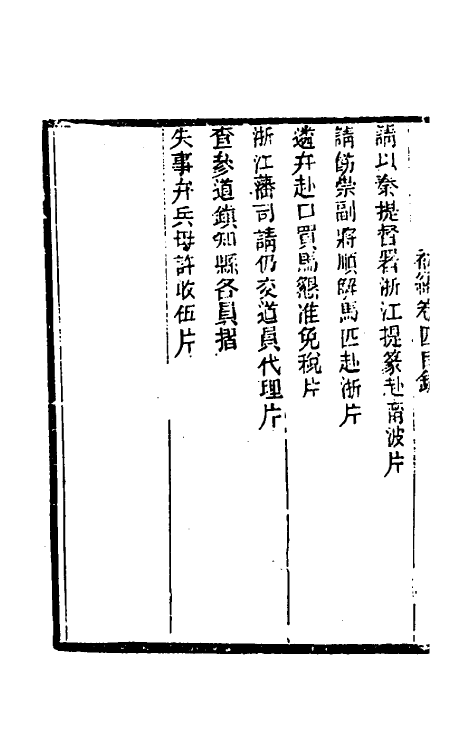 初編卷四目錄
請以秦提督署浙江提篆赴甯波片
請飭崇副將順解馬匹赴浙片
遴弁赴口買馬懇准免稅片
浙江藩司請仍交道員代理片
查參道鎮知縣各員摺
失事弁兵毋許收伍片